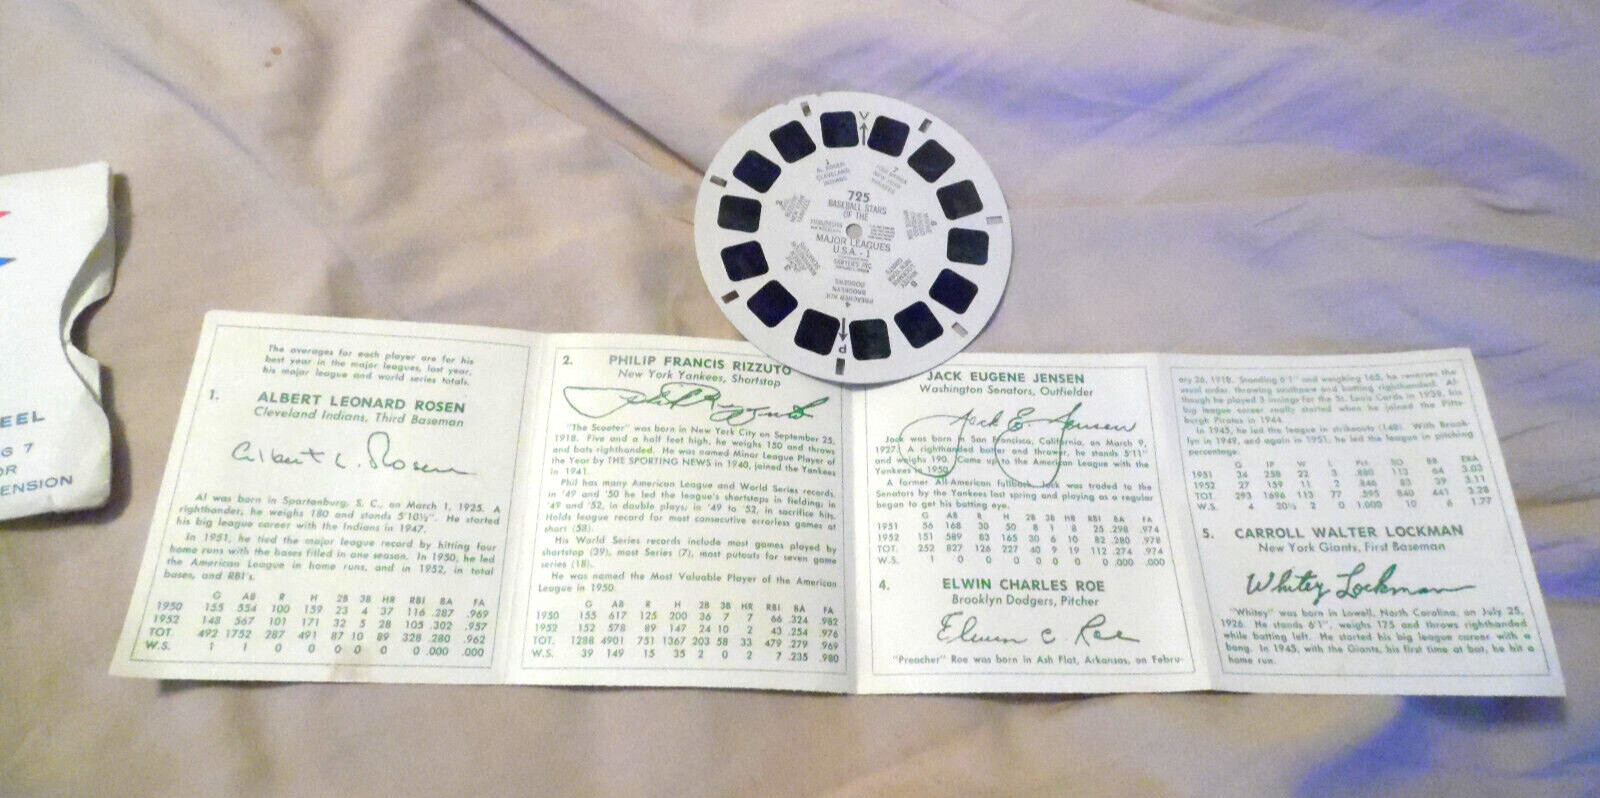 EEL
G 7
OR
ENSION
725
BASEBALL STARS
OF THE
MAJOR LEAGUES
U.S.A. - 1
SAWYER'S INC.
1
AL ROSEN
CLEVELAND
INDIANS
4
PREACHER ROE
BROOKLYN
DODGERS
The averages for each player are for his
best year in the major leagues, last year,
his major league and world series totals.
1. ALBERT LEONARD ROSEN
Cleveland Indians, Third Baseman
Albert L. Rosen
Al was born in Spartanburg, S. C., on March 1, 1925. A
righthander, he weighs 180 and stands 5'10½". He started
his big league career with the Indians in 1947.
In 1951, he tied the major league record by hitting four
home runs with the bases filled in one season. In 1950, he led
the American League in home runs, and in 1952, in total
bases, and RBI's.
G AB R H 2B 3B HR RBI BA FA
1950 155 554 100 159 23 4 37 116 .287 .969
1952 148 567 101 171 32 5 28 105 .302 .957
TOT. 492 1752 287 491 87 10 89 328 .280 .962
W.S. 1 1 0 0 0 0 0 0 .000 .000
2. PHILIP FRANCIS RIZZUTO
New York Yankees, Shortstop
Phil Rizzuto
"The Scooter" was born in New York City on September 25,
1918. Five and a half feet high, he weighs 150 and throws
and bats righthanded. He was named Minor League Player of
the Year by THE SPORTING NEWS in 1940, joined the Yankees
in 1941.
Phil has many American League and World Series records.
in '49 and '50 he led the league's shortstops in fielding; in
'49 and '52, in double plays; in '49 to '52, in sacrifice hits.
Holds league record for most consecutive errorless games at
short (58).
His World Series records include most games played by
shortstop (39), most Series (7), most putouts for seven game
series (18).
He was named the Most Valuable Player of the American
League in 1950.
G AB R H 2B 3B HR RBI BA FA
1950 155 617 125 200 36 7 7 66 .324 .982
1952 152 578 89 147 24 10 2 43 .254 .976
TOT. 1288 4901 751 1367 203 58 33 479 .279 .969
W.S. 39 149 15 35 2 0 2 7 .235 .980
JACK EUGENE JENSEN
Washington Senators, Outfielder
Jack E. Jensen
Jack was born in San Francisco, California, on March 9,
1927. A righthanded batter and thrower, he stands 5'11"
and weighs 190. Came up to the American League with the
Yankees in 1950.
A former All-American fullback, Jack was traded to the
Senators by the Yankees last spring and playing as a regular
began to get his batting eye.
G AB R H 2B 3B HR RBI BA FA
1951 56 168 30 50 8 1 8 25 .298 .974
1952 151 589 83 165 30 6 10 82 .280 .978
TOT. 252 827 126 227 40 9 19 112 .274 .974
W.S. 1 0 0 0 0 0 0 0 .000 .000
4. ELWIN CHARLES ROE
Brooklyn Dodgers, Pitcher
Elwin C. Roe
"Preacher" Roe was born in Ash Flat, Arkansas, on Febru-
ary 26, 1918. Standing 6'1" and weighing 165, he reverses the
usual order, throwing southpaw and batting righthanded. Al-
though he played 3 innings for the St. Louis Cards in 1938, his
big league career really started when he joined the Pitts-
burgh Pirates in 1944.
In 1945, he led the league in strikeouts (148). With Brook-
lyn in 1949, and again in 1951, he led the league in pitching
percentage.
G IP W L Pct. SO BB ERA
1951 34 258 22 3 .880 113 64 3.03
1952 27 159 11 2 .846 83 39 3.11
TOT. 293 1696 113 77 .595 840 441 3.28
W.S. 4 20⅔ 2 0 1.000 10 6 1.77
5. CARROLL WALTER LOCKMAN
New York Giants, First Baseman
Whitey Lockman
"Whitey" was born in Lowell, North Carolina, on July 25,
1926. He stands 6'1", weighs 175 and throws righthanded
while batting left. He started his big league career with a
bang. In 1945, with the Giants, his first time at bat, he hit a
home run.